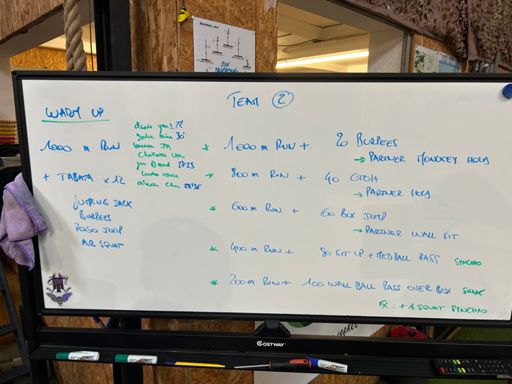 TEAM 2
WARM UP
1000 m RUN
+ TABATA x 12
JUMPING JACK
BURPEES
POGO JUMP
AIR SQUAT
* 1000 m RUN + 20 BURPEES
→ PARTNER MONKEY HOLD
* 800 m RUN + 40 GTOH
→ PARTNER HOLD
* 600 m RUN + 60 BOX JUMP
→ PARTNER WALL SIT
* 400 m RUN + 80 SIT UP + MEDBALL PASS SYNCHRO
* 200 m RUN + 100 WALL BALL PASS OVER BOX SHARE
RX : + 1 SQUAT SYNCHRO
COSTWAY